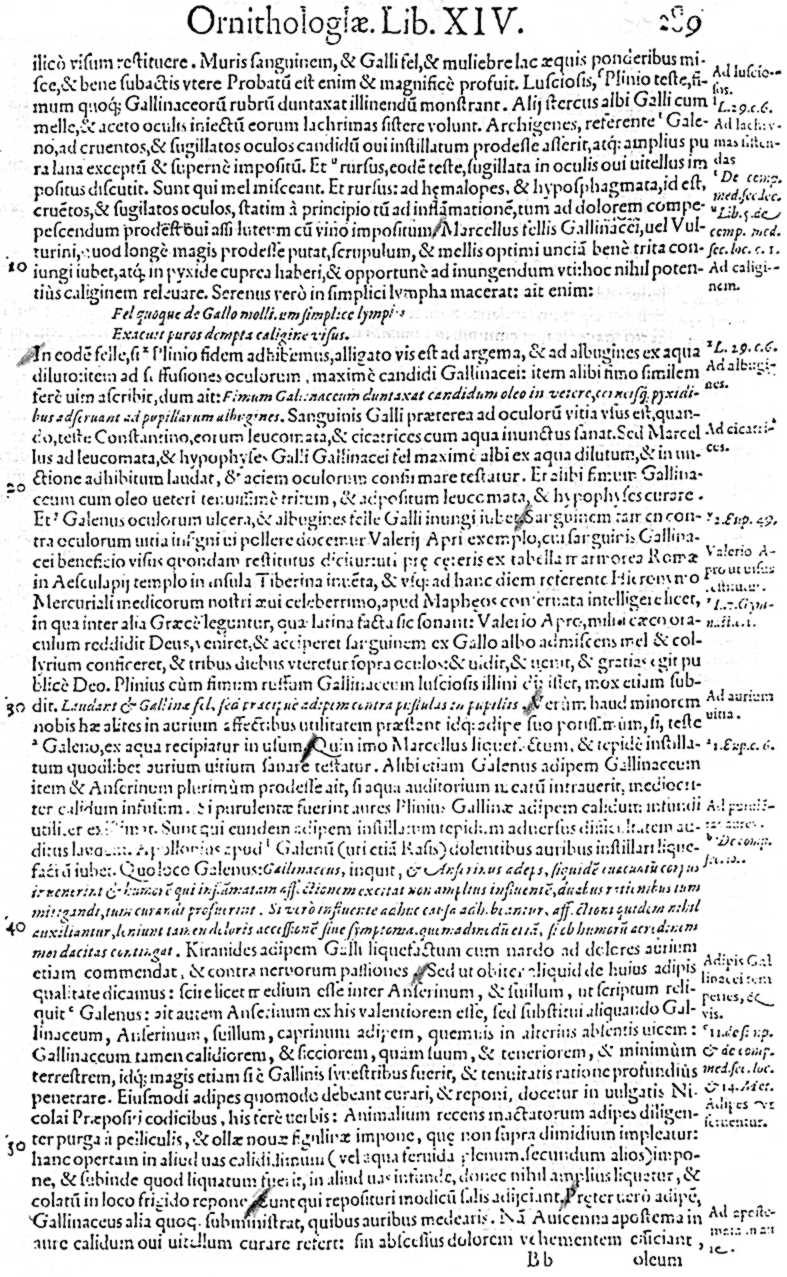 Ornithologiæ. Lib. XIV. 289
ilicò visum restituere. Muris sanguinem, & Galli fel, & muliebre lac æquis ponderibus mi-
sce, & bene subactis vtere Probatũ est enim & magnificè profuit. Lusciosis, Plinio teste, fi-
mum quoq; Gallinaceorũ rubrũ duntaxat illinendũ monstrant. Alij stercus albi Galli cum
melle, & aceto oculis iniectũ eorum lachrimas sistere volunt. Archigenes, referente Gale-
no, ad cruentos, & sugillatos oculos candidũ oui instillatum prodesse asserit, atq; amplius pu
ra lana exceptũ & supernè impositũ. Et rursus, eodẽ teste, sugillata in oculis oui uitellus im
positus discutit. Sunt qui mel misceant. Et rursus: ad hęmalopes, & hyposphagmata, id est,
cruẽtos, & sugilatos oculos, statim à principio tũ ad inflãmationẽ, tum ad dolorem compe-
pescendum prodest oui assi luteum cũ vino impositum. Marcellus fellis Gallinacei, uel Vul-
turini, quod longè magis prodesse putat, scrupulum, & mellis optimi unciã benè trita con-
10 iungi iubet, atq; in pyxide cuprea haberi, & opportunè ad inungendum vti: hoc nihil poten-
tiùs caliginem releuare. Serenus verò in simplici lympha macerat: ait enim:
Fel quoque de Gallo mollitum simplice lympha
Exacuit puros dempta caligine visus.
In eodẽ felle, si Plinio fidem adhibemus, alligato vis est ad argema, & ad albugines ex aqua
diluto: item ad suffusiones oculorum, maximè candidi Gallinacei: item alibi fimo similem
ferè uim ascribit, dum ait: Fimum Gallinaceum duntaxat candidum oleo in vetere, corneisq; pyxidi-
bus adseruant ad pupillarum albugines. Sanguinis Galli præterea ad oculorũ vitia vsus est, quan-
do, teste Constantino, eorum leucomata, & cicatrices cum aqua inunctus sanat. Sed Marcel
lus ad leucomata, & hypophyses Galli Gallinacei fel maximè albi ex aqua dilutum, & in un-
ctione adhibitum laudat, & aciem oculorum confirmare testatur. Et alibi fimum Gallina-
20 ceum cum oleo ueteri tenuissimè tritum, & adpositum leucomata, & hypophyses curare.
Et Galenus oculorum ulcera, & albugines felle Galli inungi iubet. Sanguinem tamen con-
tra oculorum uitia insigni ui pollere docemur Valerij Apri exemplo, cui sanguinis Gallina-
cei beneficio visus quondam restitutus dicitur: uti prę cęteris ex tabella marmorea Romæ
in Aesculapij templo in insula Tiberina inuẽta, & vsq; ad hanc diem referente Hieronymo
Mercuriali medicorum nostri æui celeberrimo, apud Mapheos conseruata intelligere licet,
in qua inter alia Græcè leguntur, quæ latina facta sic sonant: Valerio Apro, militi cæco ora-
culum reddidit Deus, veniret, & acciperet sanguinem ex Gallo albo admiscens mel & col-
lyrium conficeret, & tribus diebus vteretur supra oculos: & uidit, & uenit, & gratias egit pu
blicè Deo. Plinius cùm fimum russum Gallinaceum lusciosis illini dixisset, mox etiam sub-
30 dit. Laudant & Gallinæ fel, sed præcipuè adipem contra pustulas in pupillis. Verùm haud minorem
nobis hæ alites in aurium affectibus utilitatem præstant idq; adipe suo potissimùm, si, teste
Galeno, ex aqua recipiatur in usum. Quin imo Marcellus liquefactum, & tepidè instilla-
tum quodlibet aurium uitium sanare testatur. Alibi etiam Galenus adipem Gallinaceum
item & Anserinum plurimùm prodesse ait, si aqua auditorium meatũ intrauerit, mediocri-
ter calidum infusum. Si purulentæ fuerint aures Plinius Gallinæ adipem calidum infundi
utiliter existimat. Sunt qui eundem adipem instillatum tepidum aduersus difficultatem au-
ditus laudant. Apollonius apud Galenũ (uti etiã Rasis) dolentibus auribus instillari lique-
factũ iubet. Quo loco Galenus: Gallinaceus, inquit, & Anserinus adeps, siquidẽ euacuatũ corpus
inuenerint & humorẽ qui inflãmatam affectionem excitat non amplius influentẽ, duabus rationibus tum
mitigandi, tum curandi proferunt. Si verò influente adhuc causa adhibeantur, affectioni quidem nihil
40 auxiliantur, leniunt tamen doloris accessionẽ siue symptoma, quemadmodũ etiã, si ob humorũ acredinem
mordacitas contingat. Kiranides adipem Galli liquefactum cum nardo ad dolores aurium
etiam commendat, & contra neruorum passiones. Sed ut obiter aliquid de huius adipis
qualitate dicamus: scire licet medium esse inter Anserinum, & suillum, ut scriptum reli-
quit Galenus: ait autem Anserinum ex his valentiorem esse, sed substitui aliquando Gal-
linaceum, Anserinum, suillum, caprinum adipem, quemuis in alterius absentis uicem:
Gallinaceum tamen calidiorem, & sicciorem, quàm suum, & teneriorem, & minimùm
terrestrem, idq; magis etiam si è Gallinis syluestribus fuerit, & tenuitatis ratione profundiùs
penetrare. Eiusmodi adipes quomodo debeant curari, & reponi, docetur in uulgatis Ni-
colai Præpositi codicibus, his ferè uerbis: Animalium recens mactatorum adipes diligen-
50 ter purga à pelliculis, & ollæ nouæ figulinæ impone, quę non supra dimidium impleatur:
hanc opertam in aliud uas calidissimum (vel aqua feruida plenum, secundum alios) impo-
ne, & subinde quod liquatum fuerit, in aliud uas infunde, donec nihil amplius liquetur, &
colatũ in loco frigido repone. Sunt qui reposituri modicũ salis adijciant. Pręter uerò adipẽ,
Gallinaceus alia quoq. subministrat, quibus auribus medearis. Nã Auicenna apostema in
aure calidum oui uitellum curare refert: sin abscessus dolorem vehementem efficiant,
Bb oleum
Ad luscio-
sos.
L. 29. c. 6.
Ad lachry-
mas sisten-
das
De comp.
med. sec. loc.
Lib. 5. de
comp. med.
sec. loc. c. 1.
Ad caligi-
nem.
L. 29. c. 6.
Ad albugi-
nes.
Ad cicatri-
ces.
2. Eup. 49.
Valerio A-
pro ut visus
restitutus.
Ad aurium
uitia.
1. Eup. c. 6.
De comp.
Adipis Gal
linacei tem
peries, &
vis.
11. de simp.
& de comp.
med. sec. loc.
Adipes vt
seruentur.
Ad aposte-